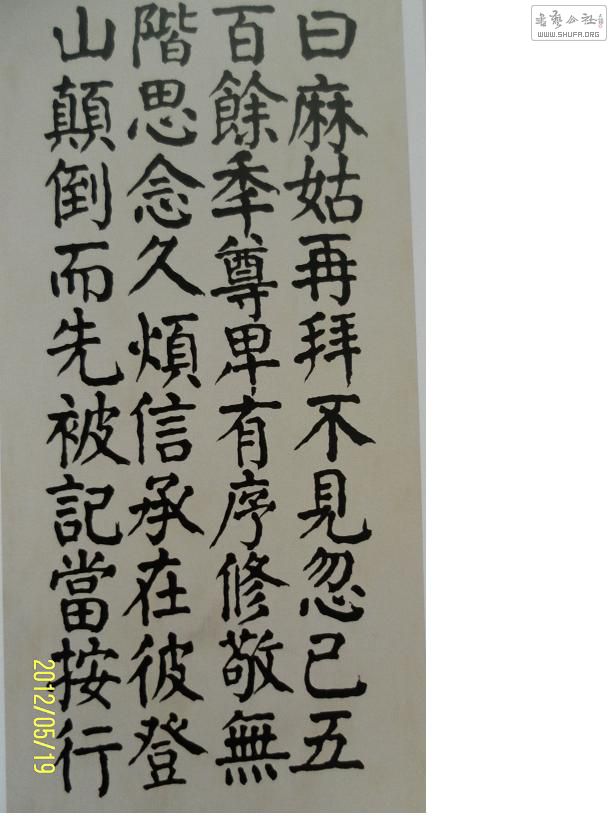 曰麻姑再拜不見忽已五
百餘季尊卑有序修敬無
階思念久煩信承在彼登
山顛倒而先被記當按行
2012/05/19
WWW.SHUFA.ORG